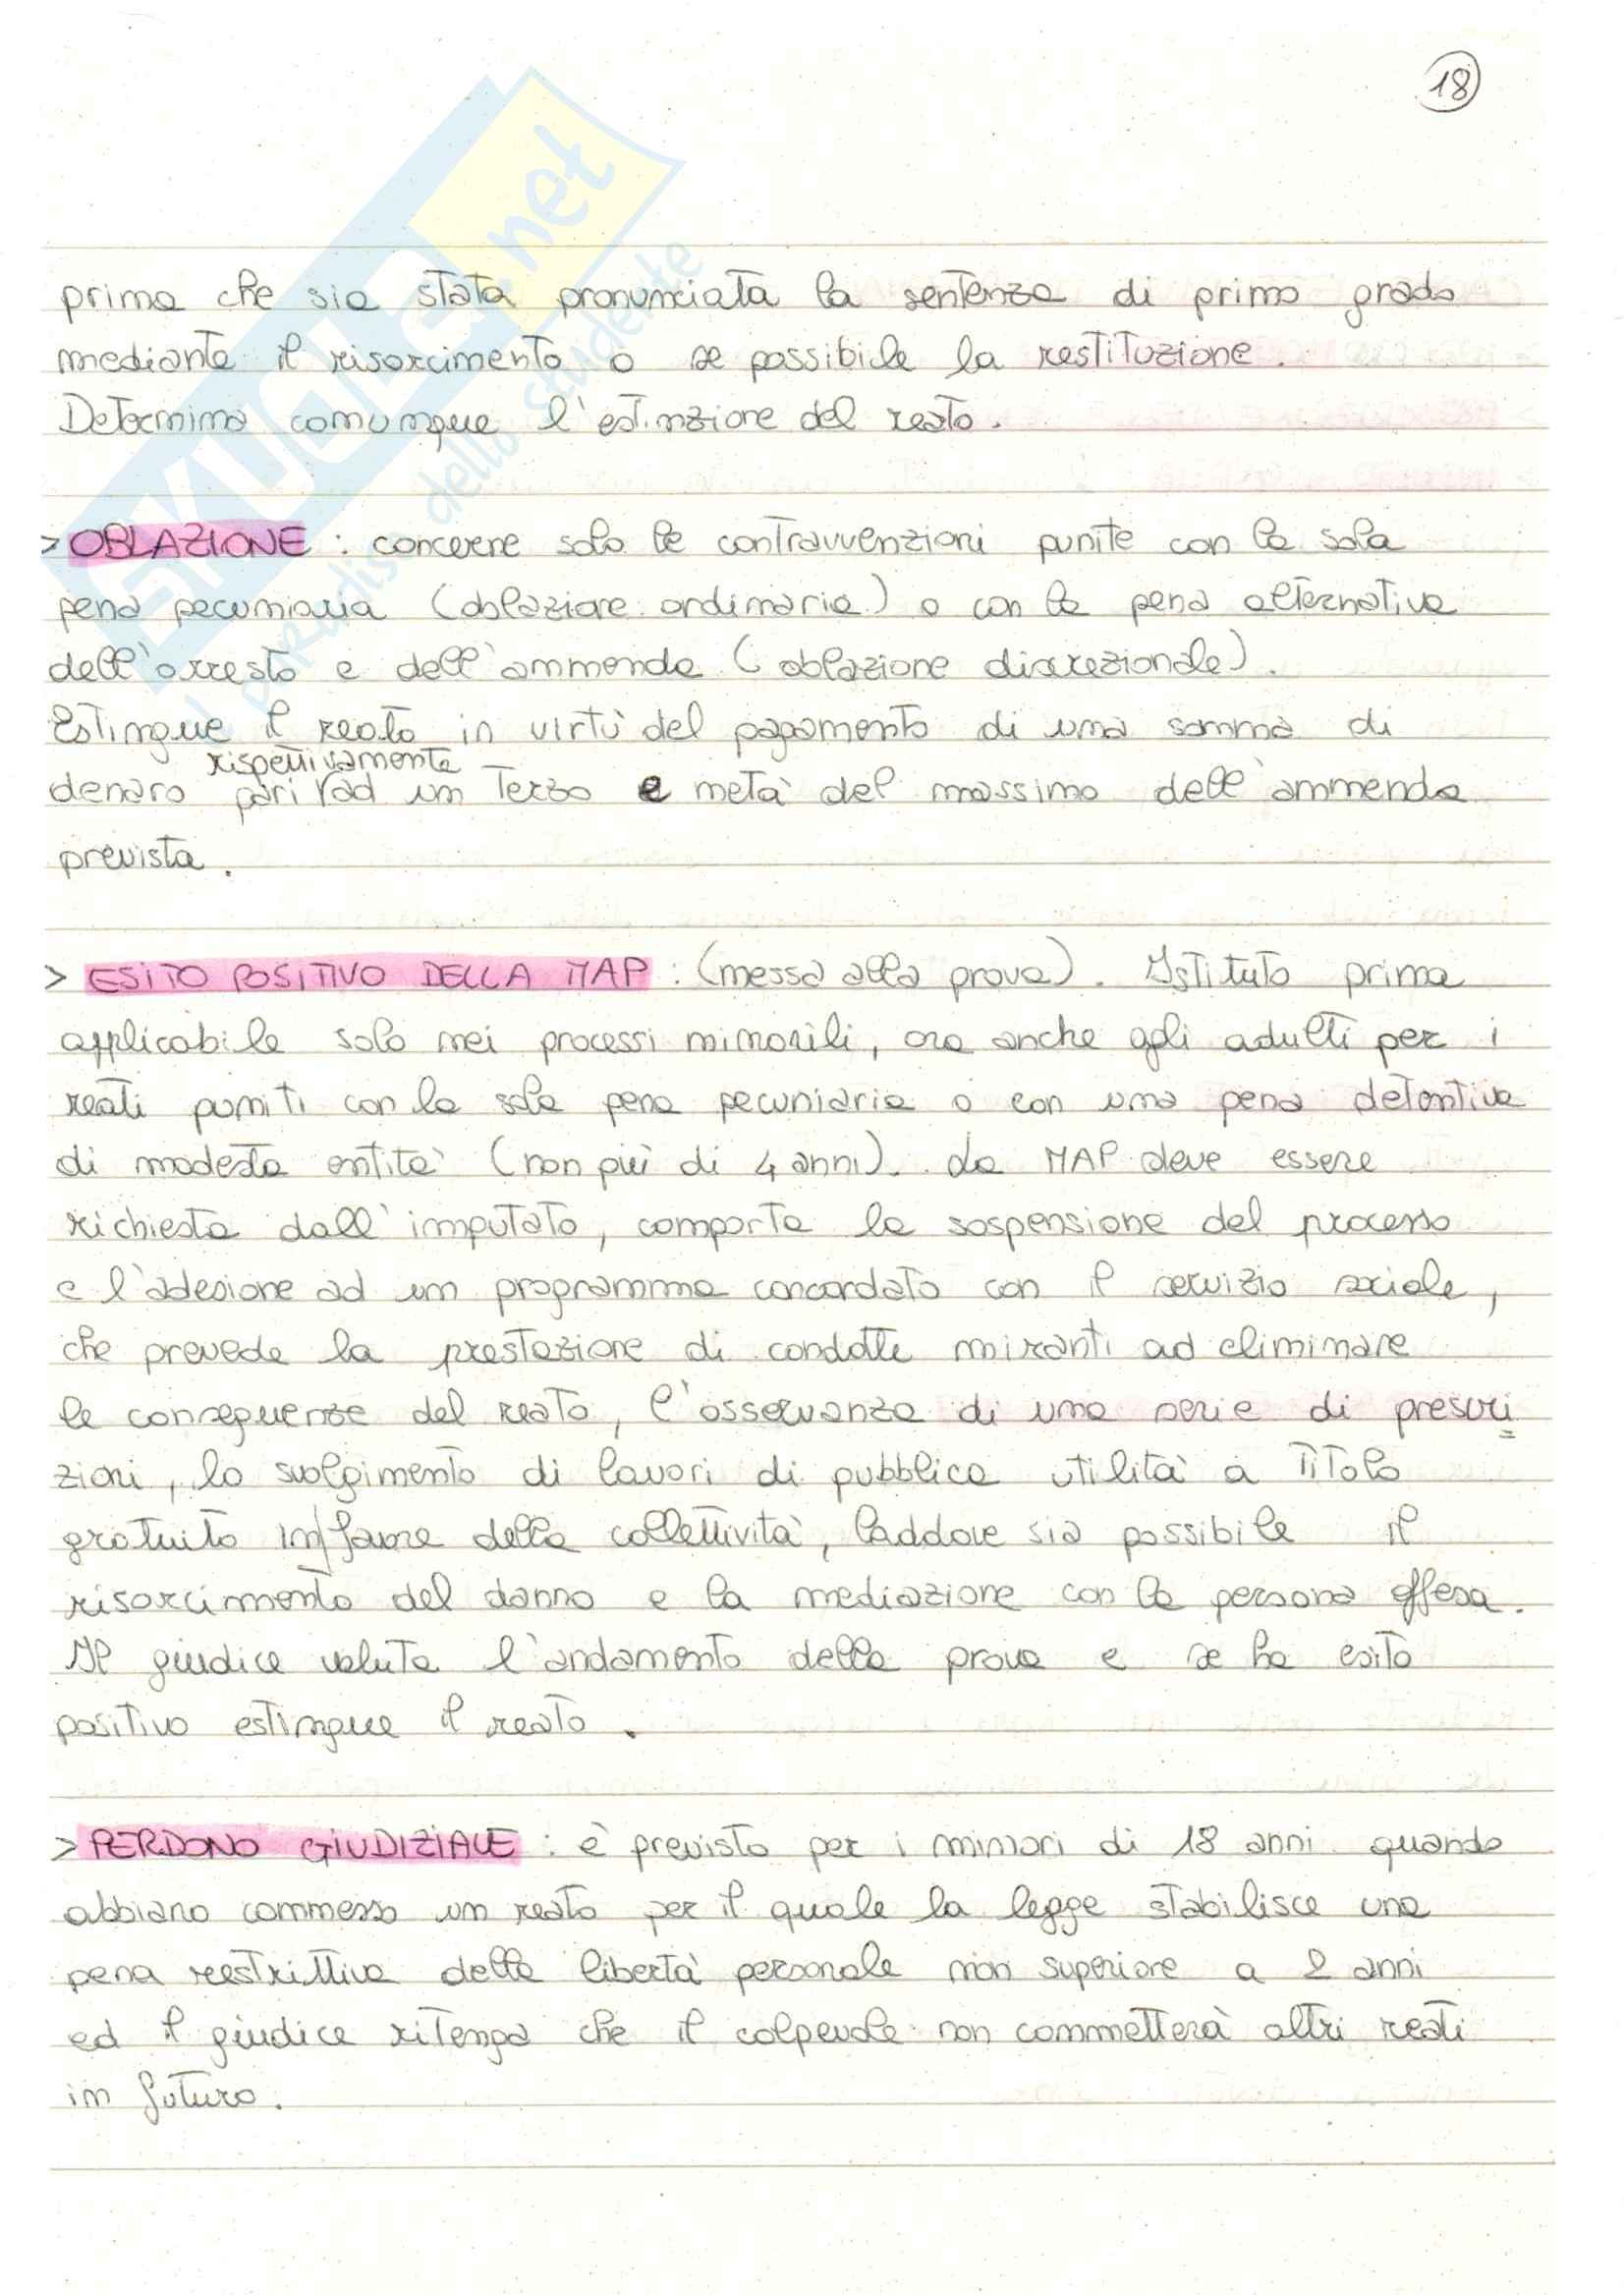 18
prima che sia stata pronunciata la sentenza di primo grado
mediante il risarcimento o se possibile la restituzione.
Determina comunque l'estinzione del reato.
> OBLAZIONE : concerne solo le contravvenzioni punite con la sola
pena pecuniaria (oblazione ordinaria) o con la pena alternativa
dell'arresto e dell'ammenda (oblazione discrezionale).
Estingue il reato in virtù del pagamento di una somma di
rispettivamente
denaro pari ad un terzo e metà del massimo dell'ammenda
prevista.
> ESITO POSITIVO DELLA MAP : (messa alla prova). Istituto prima
applicabile solo nei processi minorili, ora anche agli adulti per i
reati puniti con la sola pena pecuniaria o con una pena detentiva
di modesta entità (non più di 4 anni). La MAP deve essere
richiesta dall'imputato, comporta la sospensione del processo
e l'adesione ad un programma concordato con il servizio sociale,
che prevede la prestazione di condotte miranti ad eliminare
le conseguenze del reato, l'osservanza di una serie di prescri=
zioni, lo svolgimento di lavori di pubblica utilità a titolo
gratuito in favore della collettività, laddove sia possibile il
risarcimento del danno e la mediazione con la persona offesa.
Il giudice valuta l'andamento della prova e se ha esito
positivo estingue il reato.
> PERDONO GIUDIZIALE : è previsto per i minori di 18 anni quando
abbiano commesso un reato per il quale la legge stabilisce una
pena restrittiva della libertà personale non superiore a 2 anni
ed il giudice ritenga che il colpevole non commetterà altri reati
in futuro.
SKUOLA.net
il paradiso dello studente